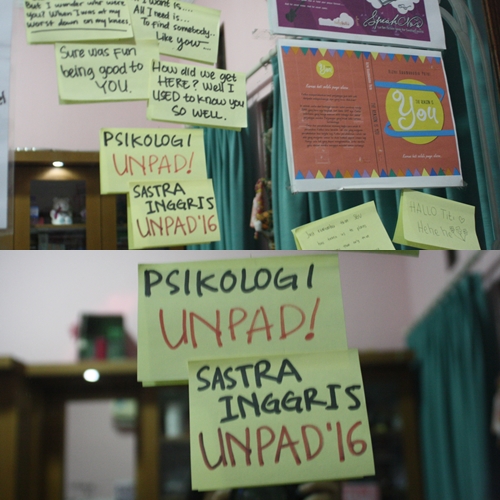 But I wonder who were
you! When I was at my
worst down on my knees
I want is....
All I need is...
To find somebody..
Like you—
Sure was fun
being good to
YOU.
How did we get
HERE? Well I
USED to know you
SO WELL.
PSIKOLOGI
UNPAD!
SASTRA
INGGRIS
UNPAD'16
Speak Now
You
You
HALLO Titi
Hehehe
PSIKOLOGI
UNPAD!
SASTRA
INGGRIS
UNPAD'16